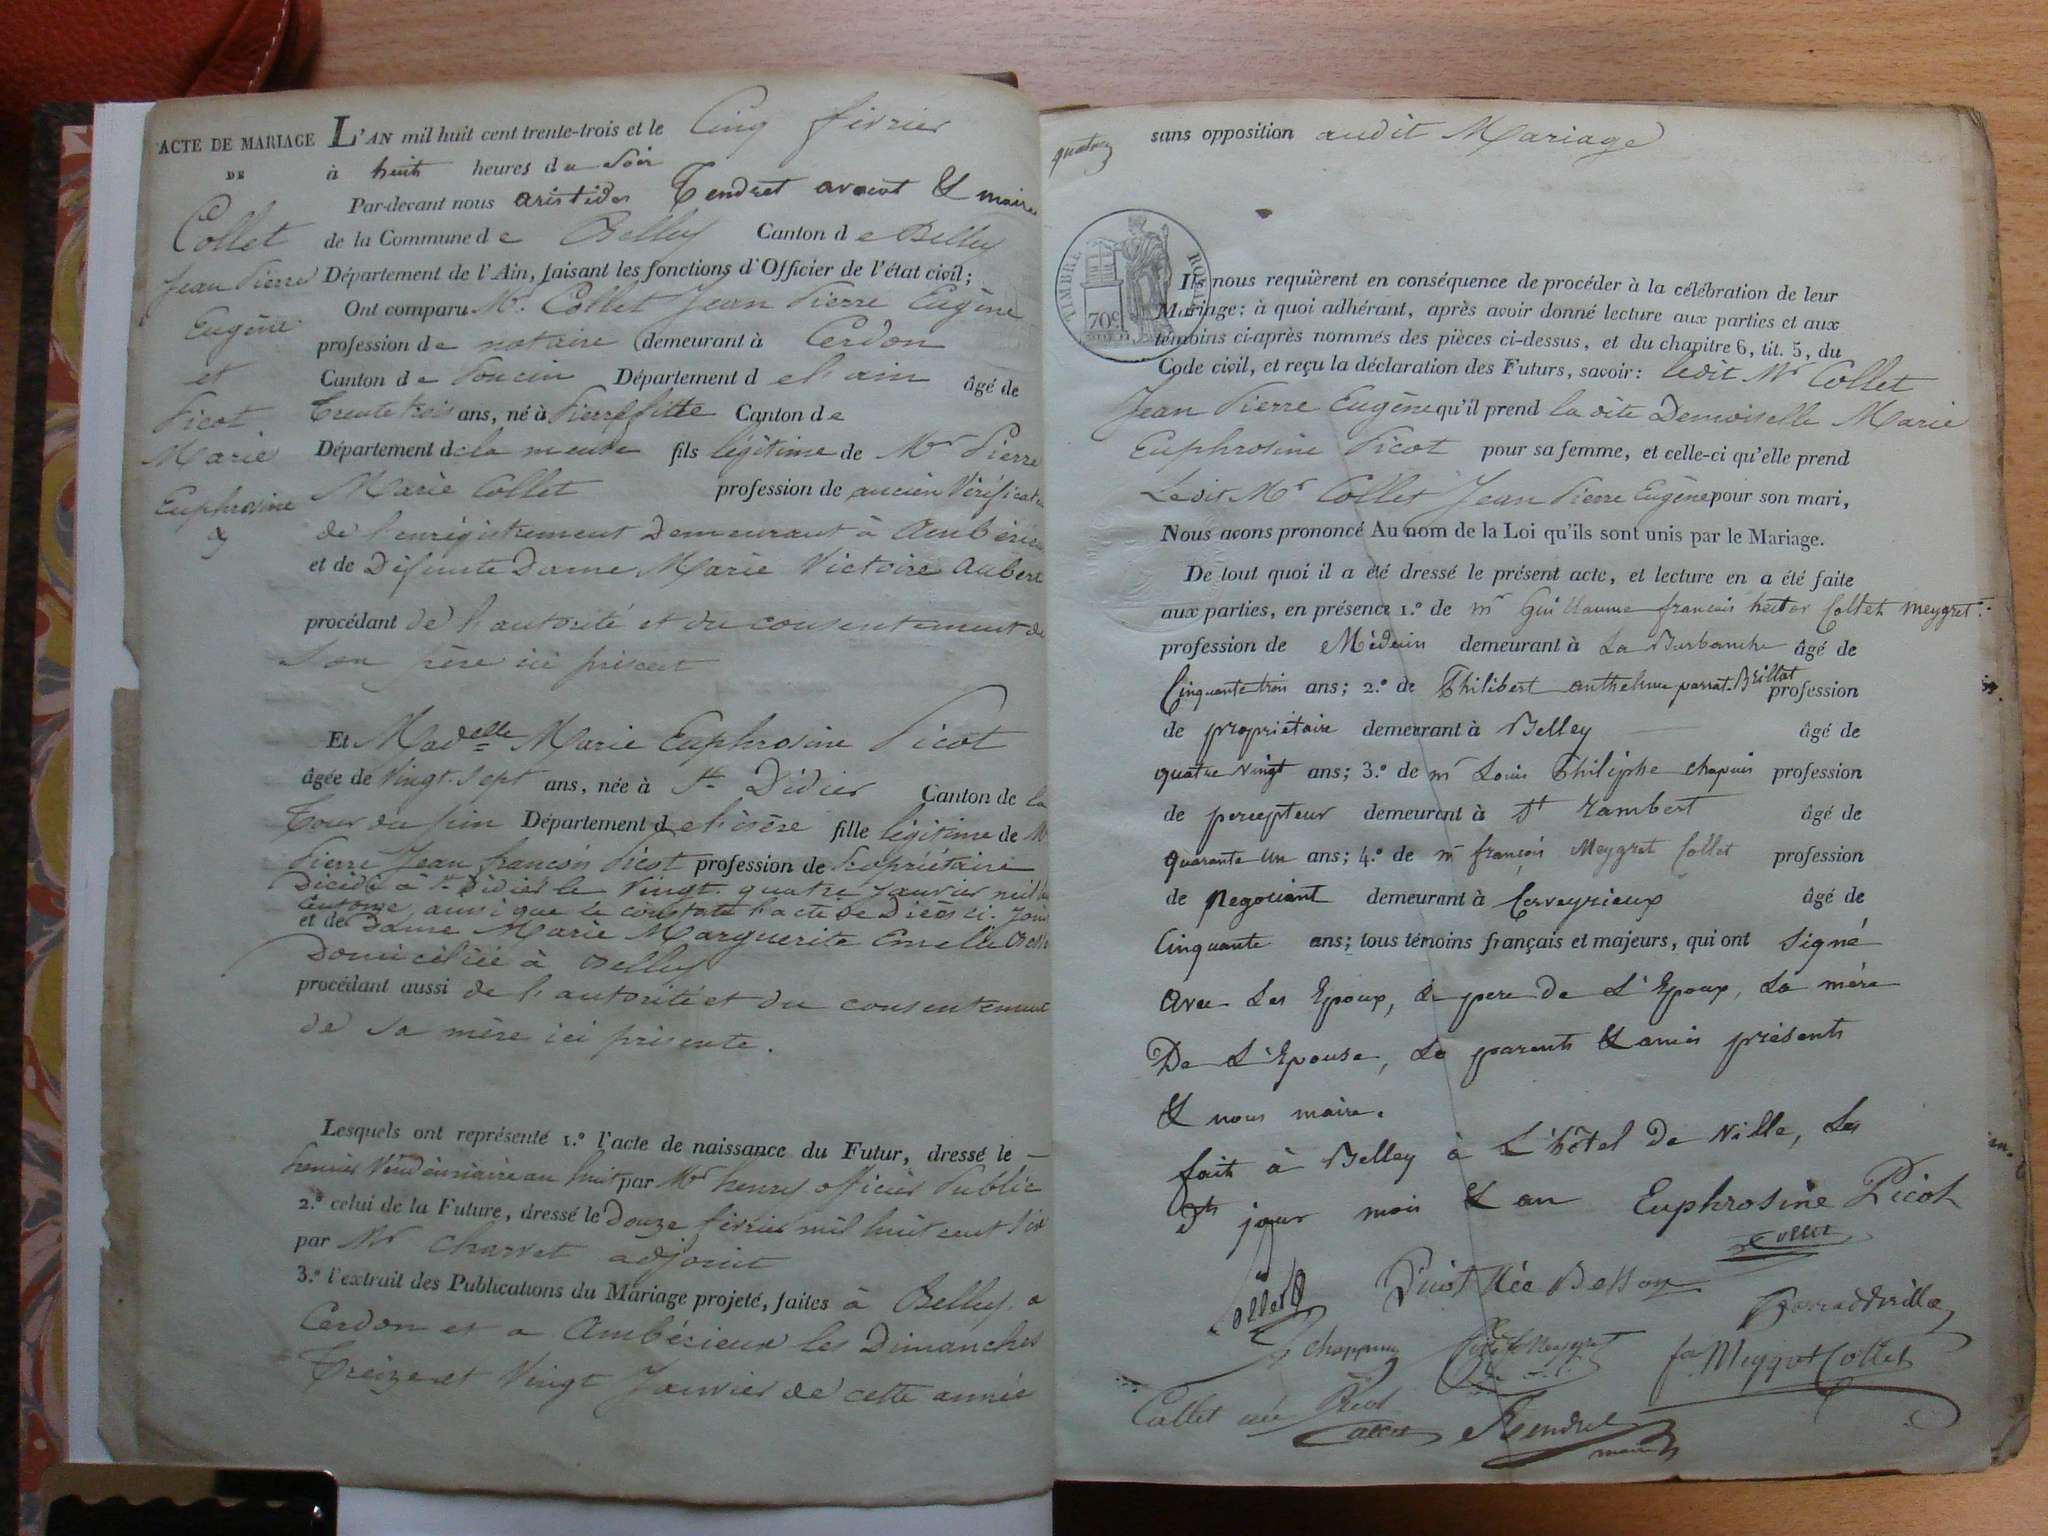 ACTE DE MARIAGE
DE
Collet
Jean Pierre
Eugène
et
Picot
Marie
Euphrosine
L'AN mil huit cent trente-trois et le Cinq février
à huit heures du Soir
Par-devant nous aristides Tendret avocat & maire
de la Commune de Belley Canton de Belley
Département de l'Ain, faisant les fonctions d'Officier de l'état civil;
Ont comparu Mr. Collet Jean Pierre Eugène
profession de notaire demeurant à Cerdon
Canton de Poncin Département de l'ain âgé de
Trente trois ans, né à Pierrefitte Canton de
Département de la meuse fils légitime de Mr Pierre
Marie Collet profession de ancien Vérificateur
de l'enregistrement Demeurant à Ambérieu
et de Défunte Dame Marie Victoire Aubert
procédant de l'autorité et du consentement de
Son père ici présent
Et Madelle Marie Euphrosine Picot
âgée de Vingt-Sept ans, née à St Didier Canton de la
Tour du pin Département de l'isère fille légitime de Mr
Pierre Jean françois Picot profession de Propriétaire
Décédé à St Didier le Vingt quatre Janvier mil huit
cent onze, ainsi que le constate l'acte de Décès ci-Joint
et de Dame Marie Marguerite Emelie Besson
Domiciliée à Belley
procédant aussi de l'autorité et du consentement
de Sa mère ici présente.
Lesquels ont représenté 1.º l'acte de naissance du Futur, dressé le
premier Vendémiaire an huit par Mr henry officier Public
2.º celui de la Future, dressé le Douze février mil huit cent Six
par Mr Charvet adjoint
3.º l'extrait des Publications du Mariage projeté, faites à Belley, a
Cerdon et a Ambérieux les Dimanches
Treize et Vingt Janvier de cette année
quatorze
sans opposition audit Mariage
TIMBRE ROYAL
70c
Ils nous requièrent en conséquence de procéder à la célébration de leur
Mariage; à quoi adhérant, après avoir donné lecture aux parties et aux
témoins ci-après nommés des pièces ci-dessus, et du chapitre 6, tit. 5, du
Code civil, et reçu la déclaration des Futurs, savoir: ledit Mr Collet
Jean Pierre Eugène qu'il prend la dite Demoiselle Marie
Euphrosine Picot pour sa femme, et celle-ci qu'elle prend
Ledit Mr Collet Jean Pierre Eugène pour son mari,
Nous avons prononcé Au nom de la Loi qu'ils sont unis par le Mariage.
De tout quoi il a été dressé le présent acte, et lecture en a été faite
aux parties, en présence 1.º de mr Guillaume françois hector Collet meygret
profession de Médecin demeurant à La Burbanche âgé de
Cinquante trois ans; 2.º de Philibert anthelme parrat-Brillat profession
de propriétaire demeurant à Belley âgé de
quatre vingt ans; 3.º de mr Louis Philiphe chapuis profession
de percepteur demeurant à St rambert âgé de
quarante un ans; 4.º de mr françois Meygret Collet profession
de Negociant demeurant à Cerveyrieux âgé de
Cinquante ans; tous témoins français et majeurs, qui ont signé
avec Les Epoux, Le pere De L'Epoux, La mére
De L'Epouse, Les parents & amis présents
& nous maire.
fait à Belley à L'hôtel De Ville, Les
jour mois & an Euphrosine Picot
Collet
Collet Picot Née Besson
Meygret fs Meygret Collet
Collet née Picot Collet Tendret
maire